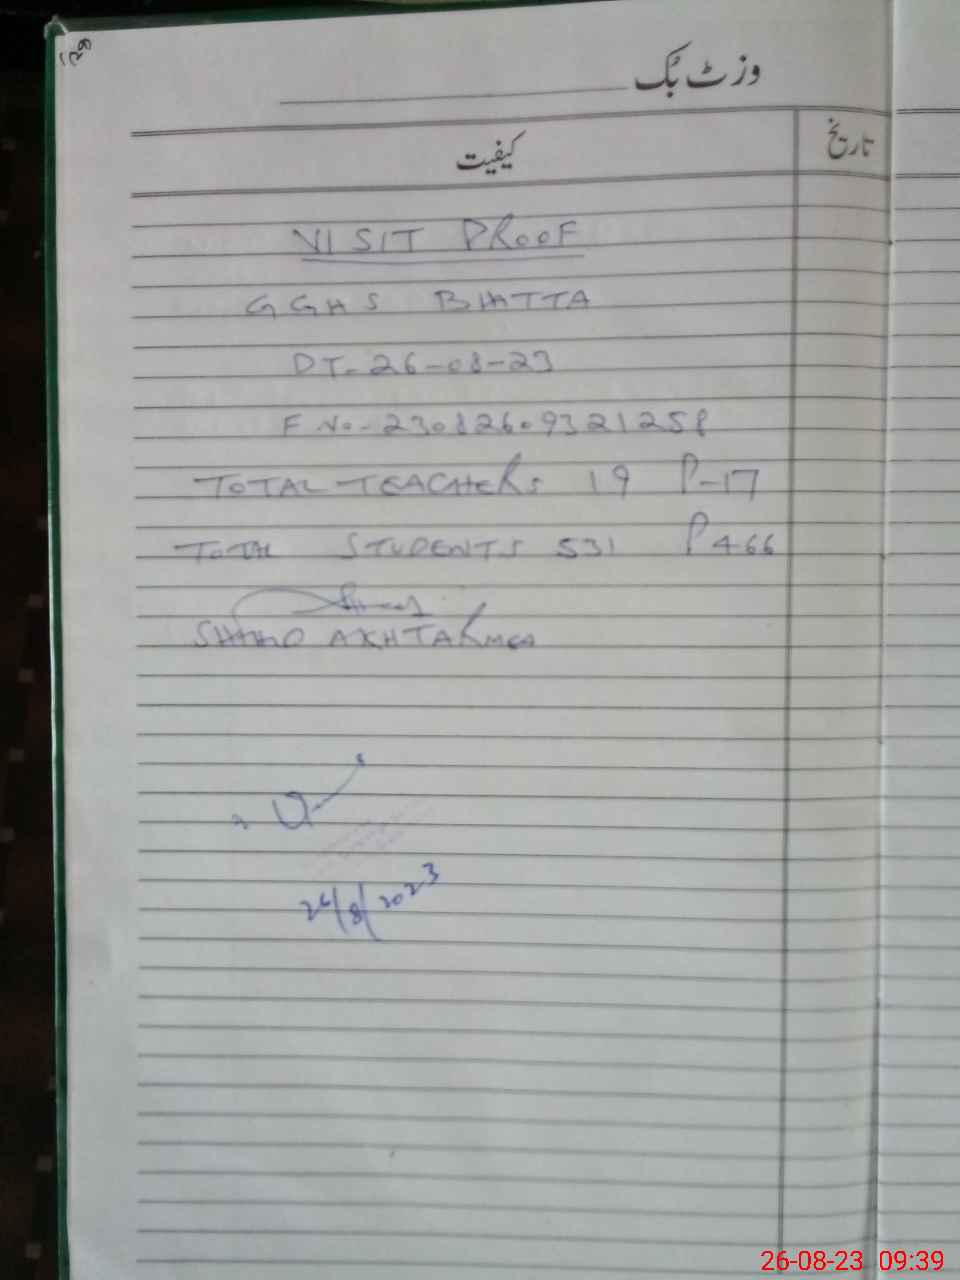 وزٹ بُک
کیفیت
تاریخ
VISIT PROOF
GGHS BHATTA
DT-26-08-23
F No-23082609321258
TOTAL TEACHERS 19 P-17
TOTAL STUDENTS 531 P466
AKHTAR MEA
26/8/2023
26-08-23 09:39